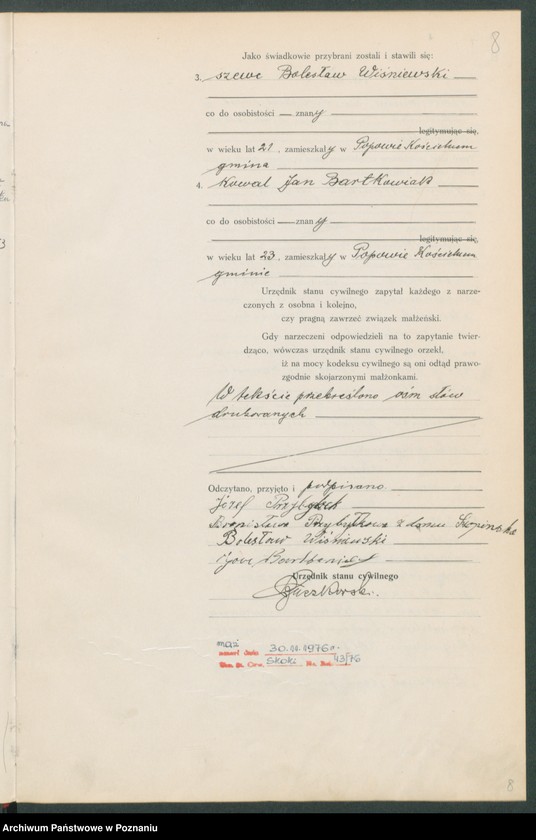 8
Jako świadkowie przybrani zostali i stawili się:
3. szewc Bolesław Wiśniewski
co do osobistości znany
legitymując się,
w wieku lat 21, zamieszkały w Popowie Kościelnem
gmina
4. Kowal Jan Bartkowiak
co do osobistości znany
legitymując się,
w wieku lat 23, zamieszkały w Popowie Kościelnem
gminie
Urzędnik stanu cywilnego zapytał każdego z narze-
czonych z osobna i kolejno,
czy pragną zawrzeć związek małżeński.
Gdy narzeczeni odpowiedzieli na to zapytanie twier-
dząco, wówczas urzędnik stanu cywilnego orzekł,
iż na mocy kodeksu cywilnego są oni odtąd prawo-
zgodnie skojarzonymi małżonkami.
W tekście przekreślono ośm słów
drukowanych
Odczytano, przyjęto i podpisano
Józef
Bronisława z domu
Bolesław Wiśniewski
Urzędnik stanu cywilnego
mąż
zmarł dnia 30.11.1976 r.
Skoki 43/76
8
Archiwum Państwowe w Poznaniu